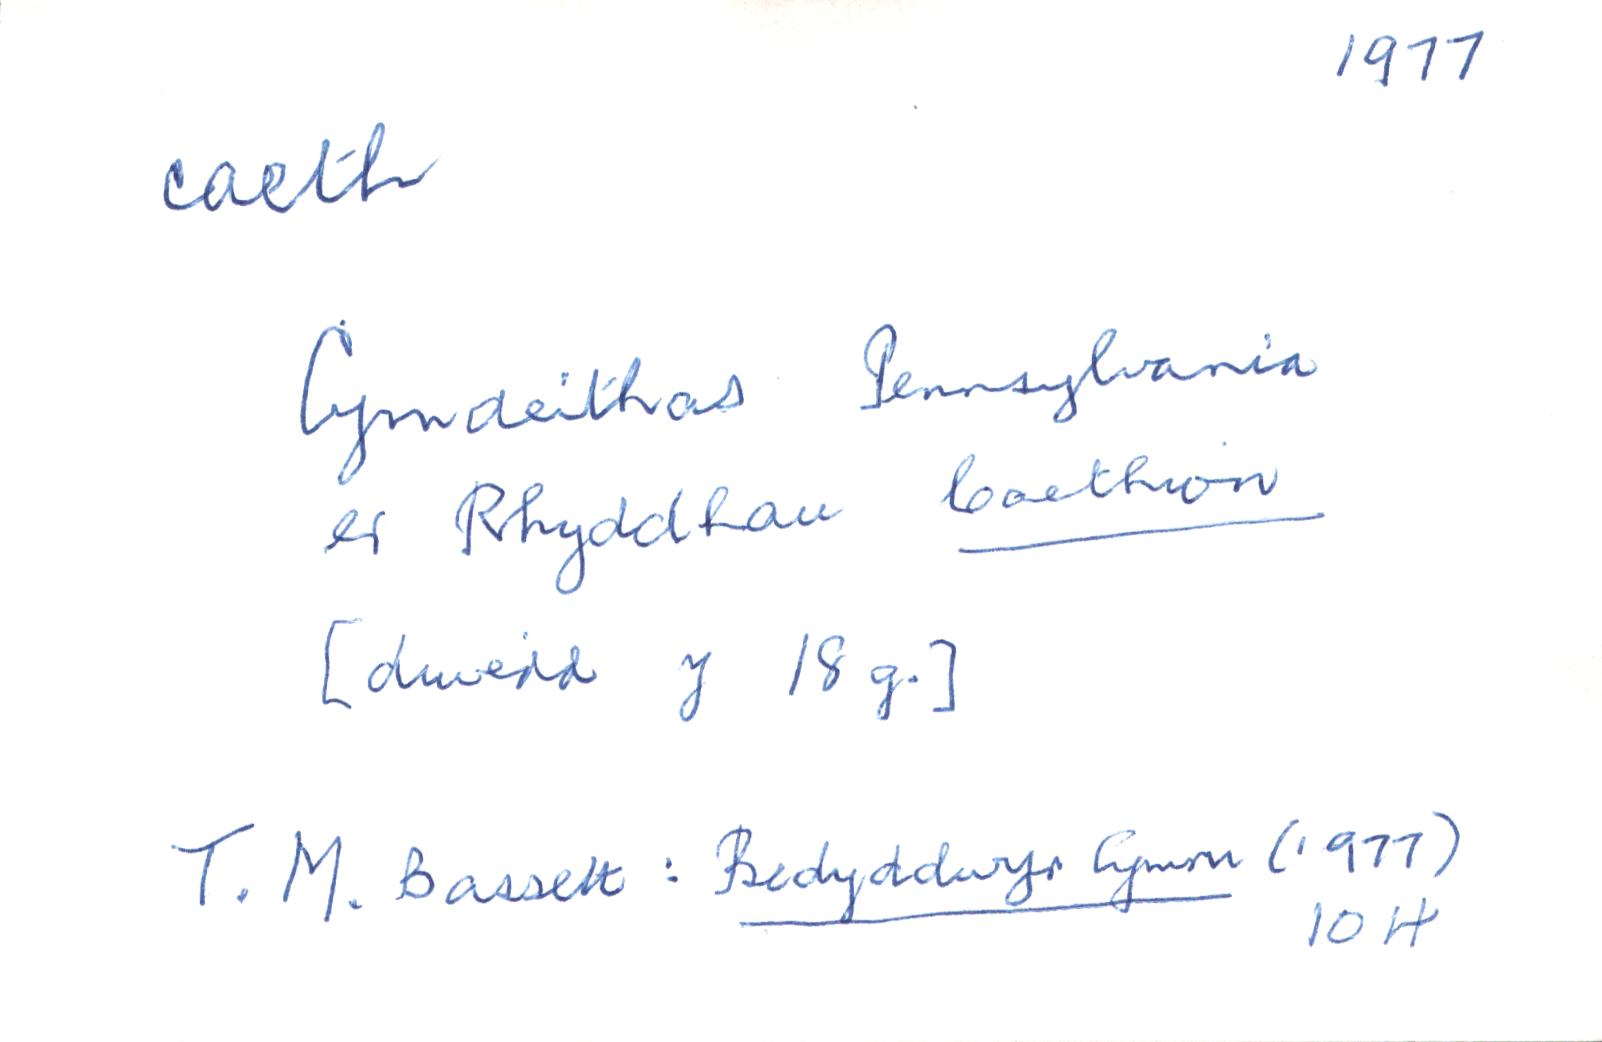 1977
caeth
Cymdeithas Pennsylvania
er Rhyddhau Caethion
[diwedd y 18 g.]
T. M. Bassett : Bedyddwyr Cymru (1977)
104